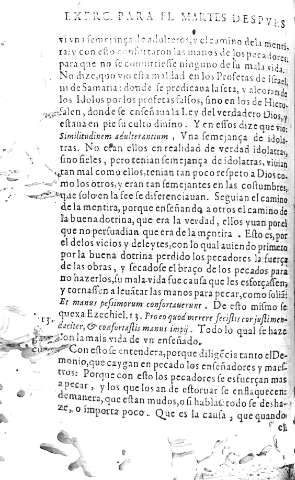 EXERC. PARA EL MARTES DESPVES
vi vna semejança de adulteros, y el camino de la menti
ra: y con esto confortaron las manos de los pecadores,
para que no se conuirtiesse ninguno de la mala vida.
No dize, que vio esta maldad en los Profetas de Israel,
ni de Samaria: donde se predicaua la seta, y alcoran de
los Idolos por los profetas falsos, sino en los de Hieru-
salen, donde se enseñaua la Ley del verdadero Dios, y
estaua en pie su culto diuino. Y en esso dize que vio:
Similitudinem adulterantium, Vna semejança de idola-
tras. No eran ellos en realidad de verdad idolatras,
sino fieles, pero tenian semejança de idolatras, viuian
tan mal como ellos, tenian tan poco respeto a Dios co-
mo los otros, y eran tan semejantes en las costumbres,
que solo en la fee se diferenciauan. Seguian el camino
de la mentira, porque enseñando a otros el camino de
la buena dotrina, que era la verdad, ellos yuan por el
que no persuadian que era de la mentira. Esto es, por
el de los vicios y deleytes, con lo qual auiendo primero
por la buena dotrina perdido los pecados la fuerça
de las obras, y secadose el braço de los pecados para
no hazerlos, su mala vida fue causa que les esforçassen,
y tornassen a leuãtar las manos para pecar, como soliã:
Et manus pessimorum confortauerunt. De esto mismo se
13. quexa Ezechiel. 13. Pro eo quod mœrere fecistis cor justi men-
daciter, & confortastis manus impij. Todo lo qual se haze
con la mala vida de vn enseñado.
Con esto se entendera, porque diligẽcia tanto el De-
monio, que caygan en pecado los enseñadores y maes-
tros: Porque con esto los pecadores se esfuerçan mas
a pecar, y los que los an de estoruar se enflaquecen:
demanera, que estan mudos, o si hablãs: todo se desha-
ze, o importa poco. Que es la causa, que quando
el